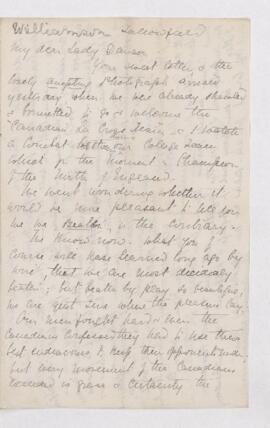 Williamson
My dear Lady Dawson
Your sweet letter & the
lovely amusing Photograph arrived
yesterday when we were already shawled
& bonnetted to go & welcome the
Canadian La Crosse Team &
a combat our College Team
the moment Champion
of the North of England.
We went wondering whether it
would be more pleasant to tell you
we were Beaten, or the contrary.
We know now. What you of
course will have learned long ago by
wire, that we are most decidedly
beaten; but beaten by play so beautiful,
we are quite sure when the pleasure
Our men fought hard & even the
Canadians confessed they had to use their
best endeavours to keep their opponents under,
but every movement of the Canadians
in grace & certainty the